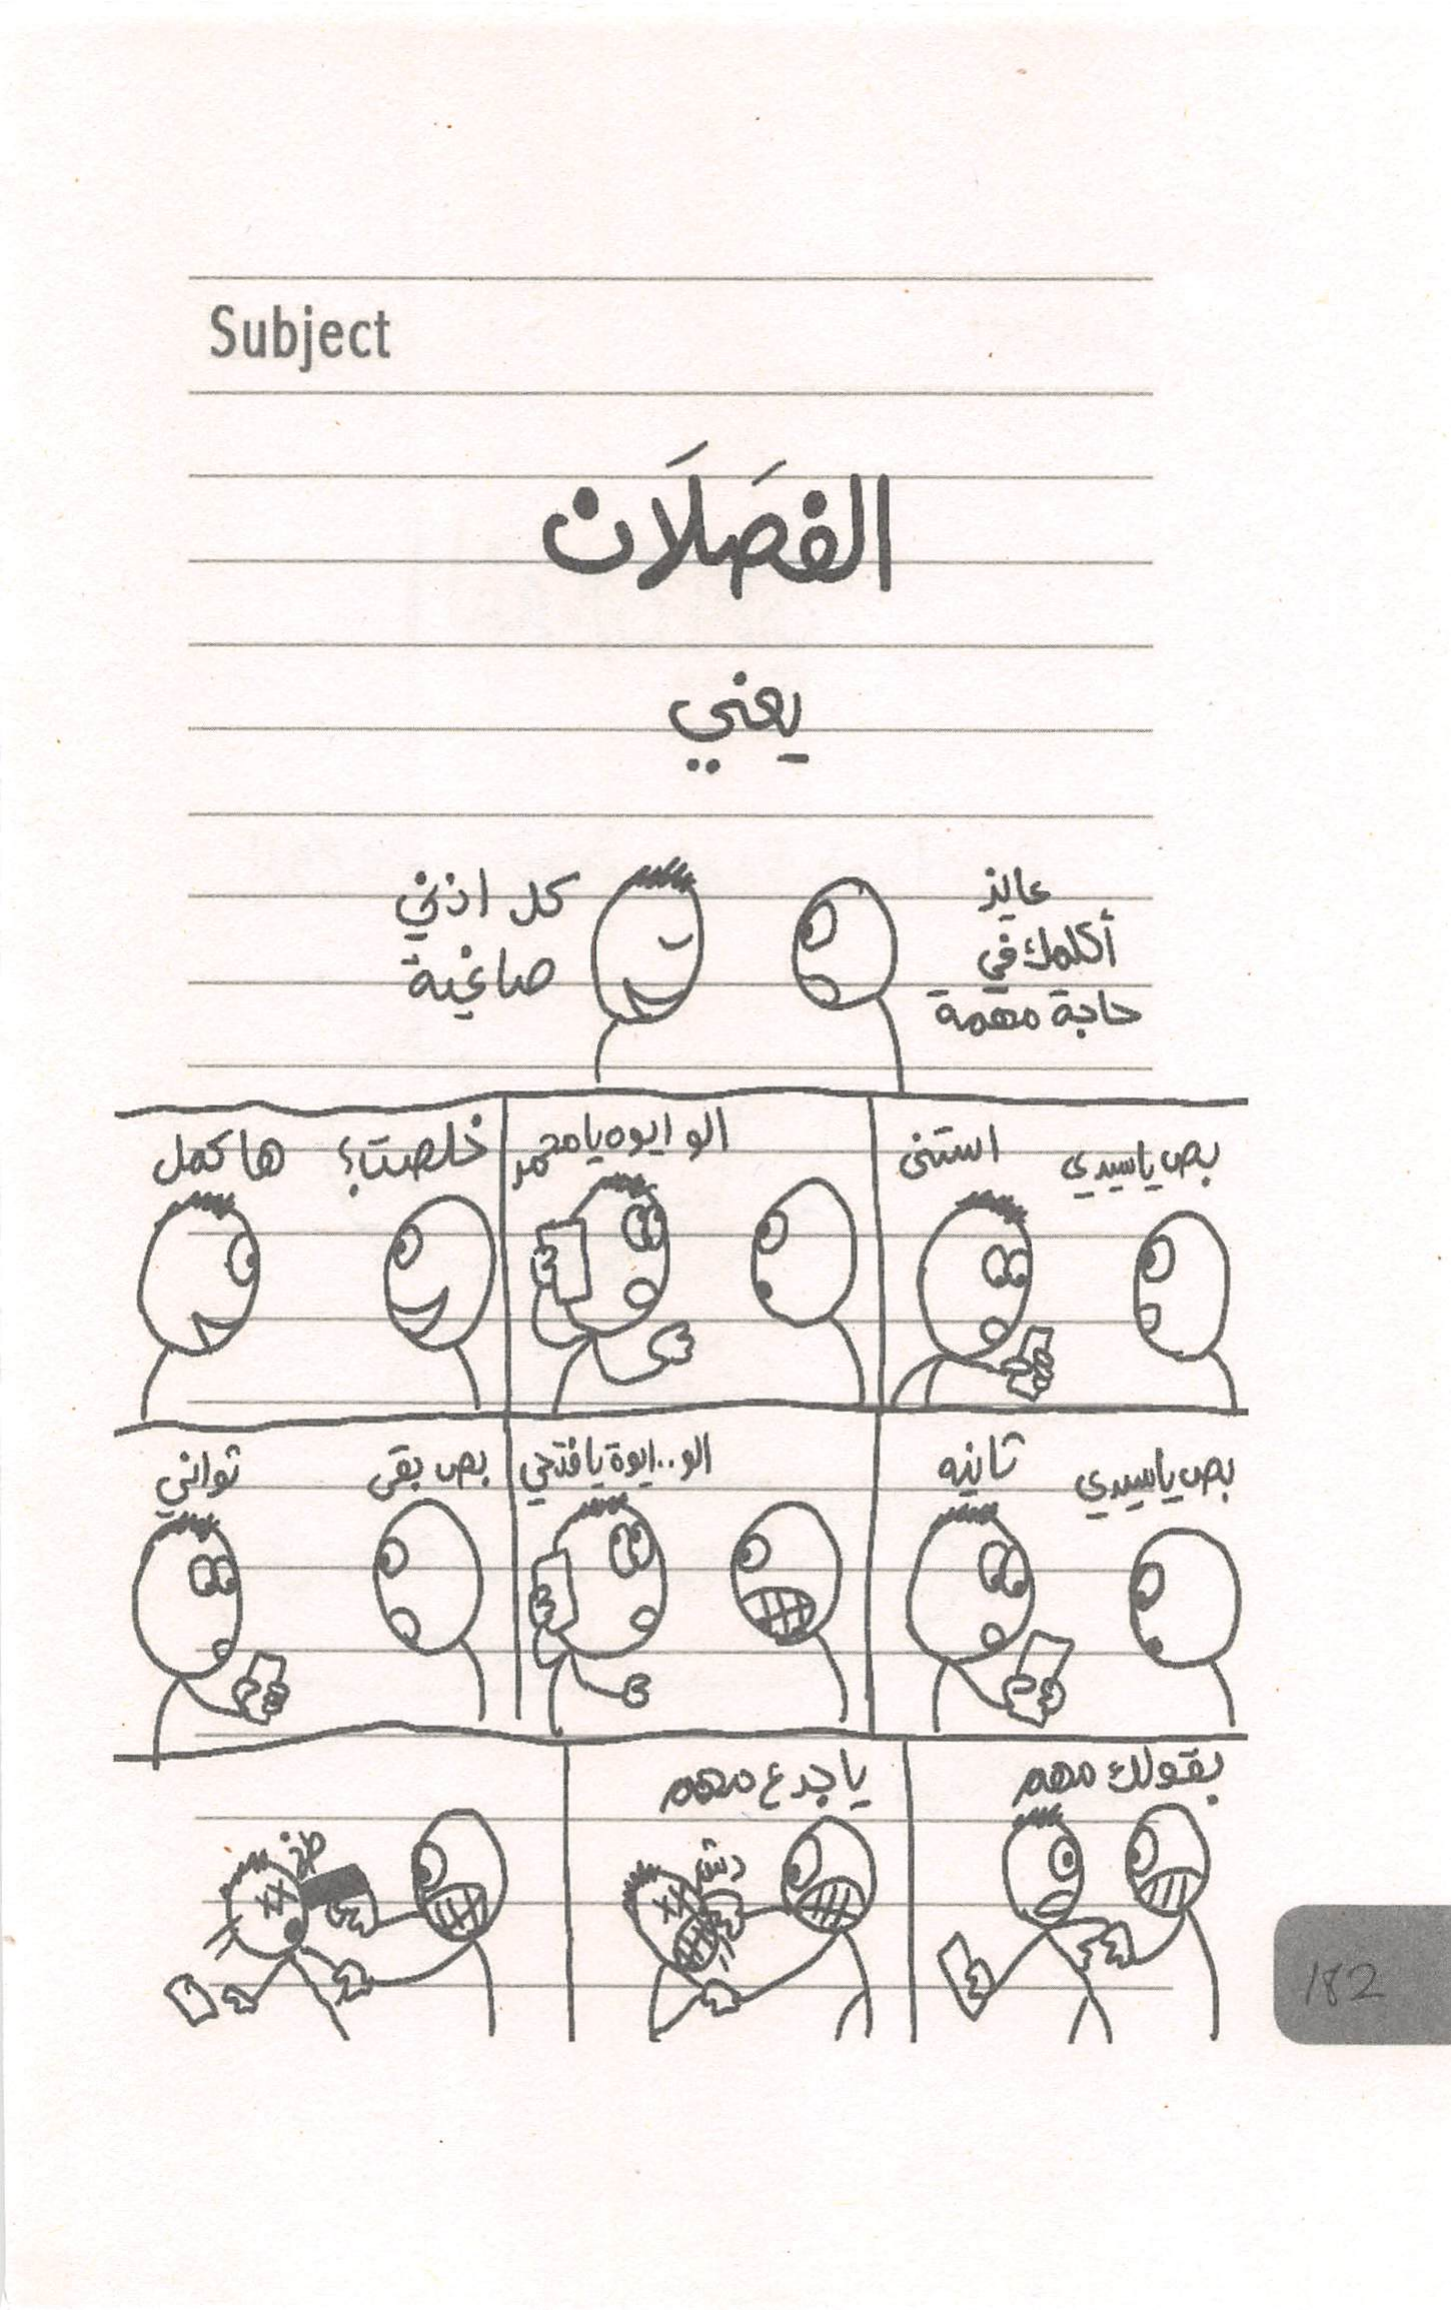 Subject
الفَصَلَان
يعني
عايز
أكلمك في
حاجة مهمة
كل اذني
صاغية
بص ياسيدي
استنى
الو ايوه يا محمد
خلصت؟
ها كمل
بص ياسيدي
ثانيه
الو..ايوة يا فتحي
بص بقى
ثواني
بقولك مهم
يا جدع مهم
دش
طخ
182